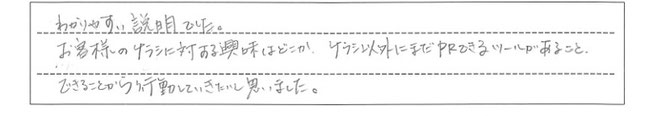 わかりやすい説明でした。
お客様のチラシに対する興味はどこか、チラシ以外にまだPRできるツールがあること、
できることから行動していきたいと思いました。